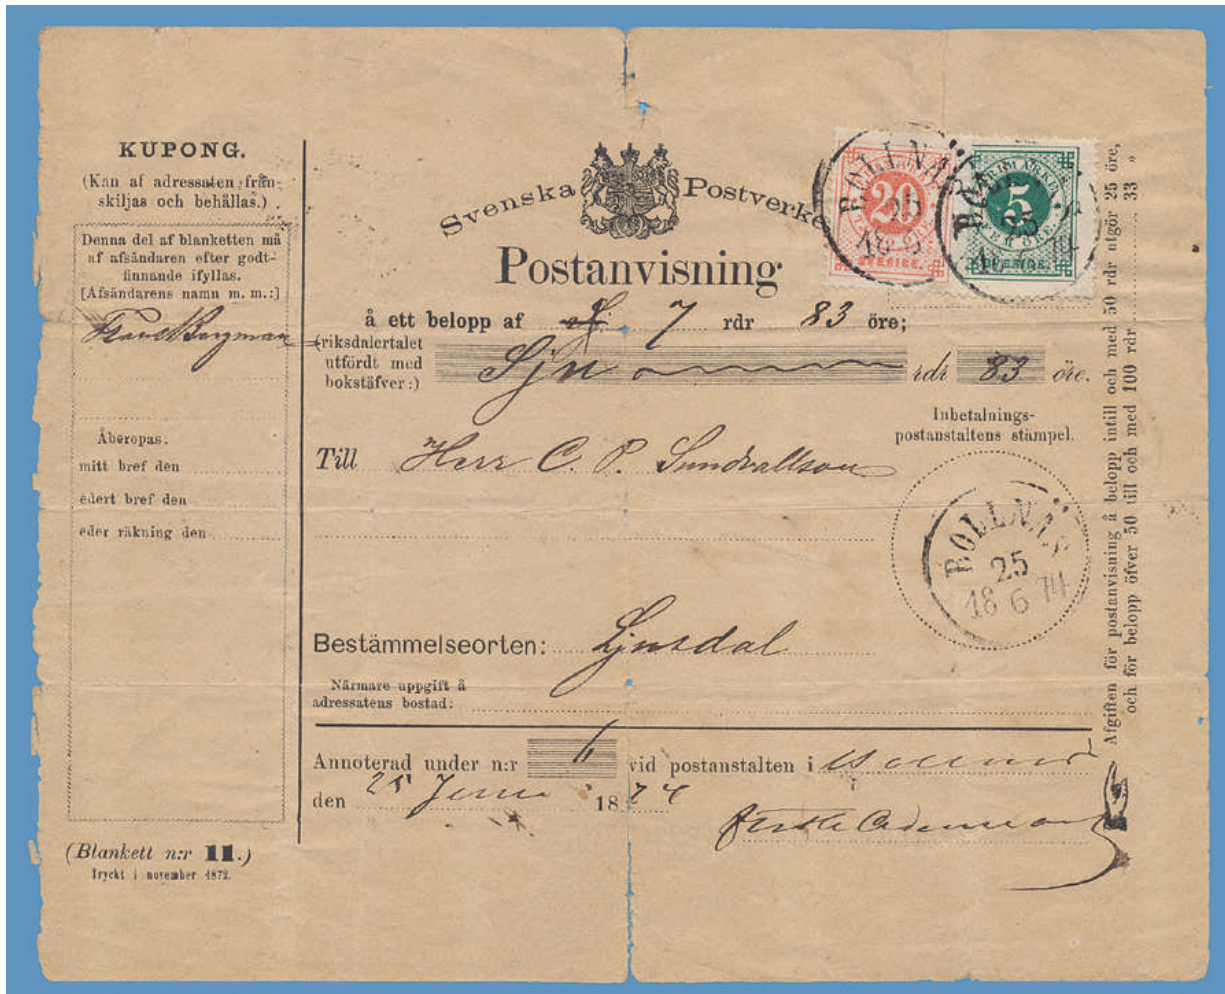 KUPONG.
(Kan af adressaten från-
skiljas och behållas.)
Denna del af blanketten må
af afsändaren efter godt-
finnande ifyllas.
[Afsändarens namn m. m.:]
Bergman
Åberopas.
mitt bref den
edert bref den
eder räkning den
(Blankett n:r 11.)
Tryckt i november 1872.
Svenska Postverket
Postanvisning
å ett belopp af 7 rdr 83 öre;
(riksdalertalet
utfördt med
bokstäfver:)
Sju rdr 83 öre.
Till Herr C. P. Sundvallson
Inbetalnings-
postanstaltens stämpel.
BOLLNÄS
25
18 6 74
Bestämmelseorten: Ljusdal
Närmare uppgift å
adressatens bostad:
Annoterad under n:r vid postanstalten i Bollnäs
den 25 Juni 1874
BOLLNÄS
20
SVERIGE.
BOLLNÄS
5
25
SVERIGE.
Afgiften för postanvisning å belopp intill och med 50 rdr utgör 25 öre,
och för belopp öfver 50 till och med 100 rdr 33 „